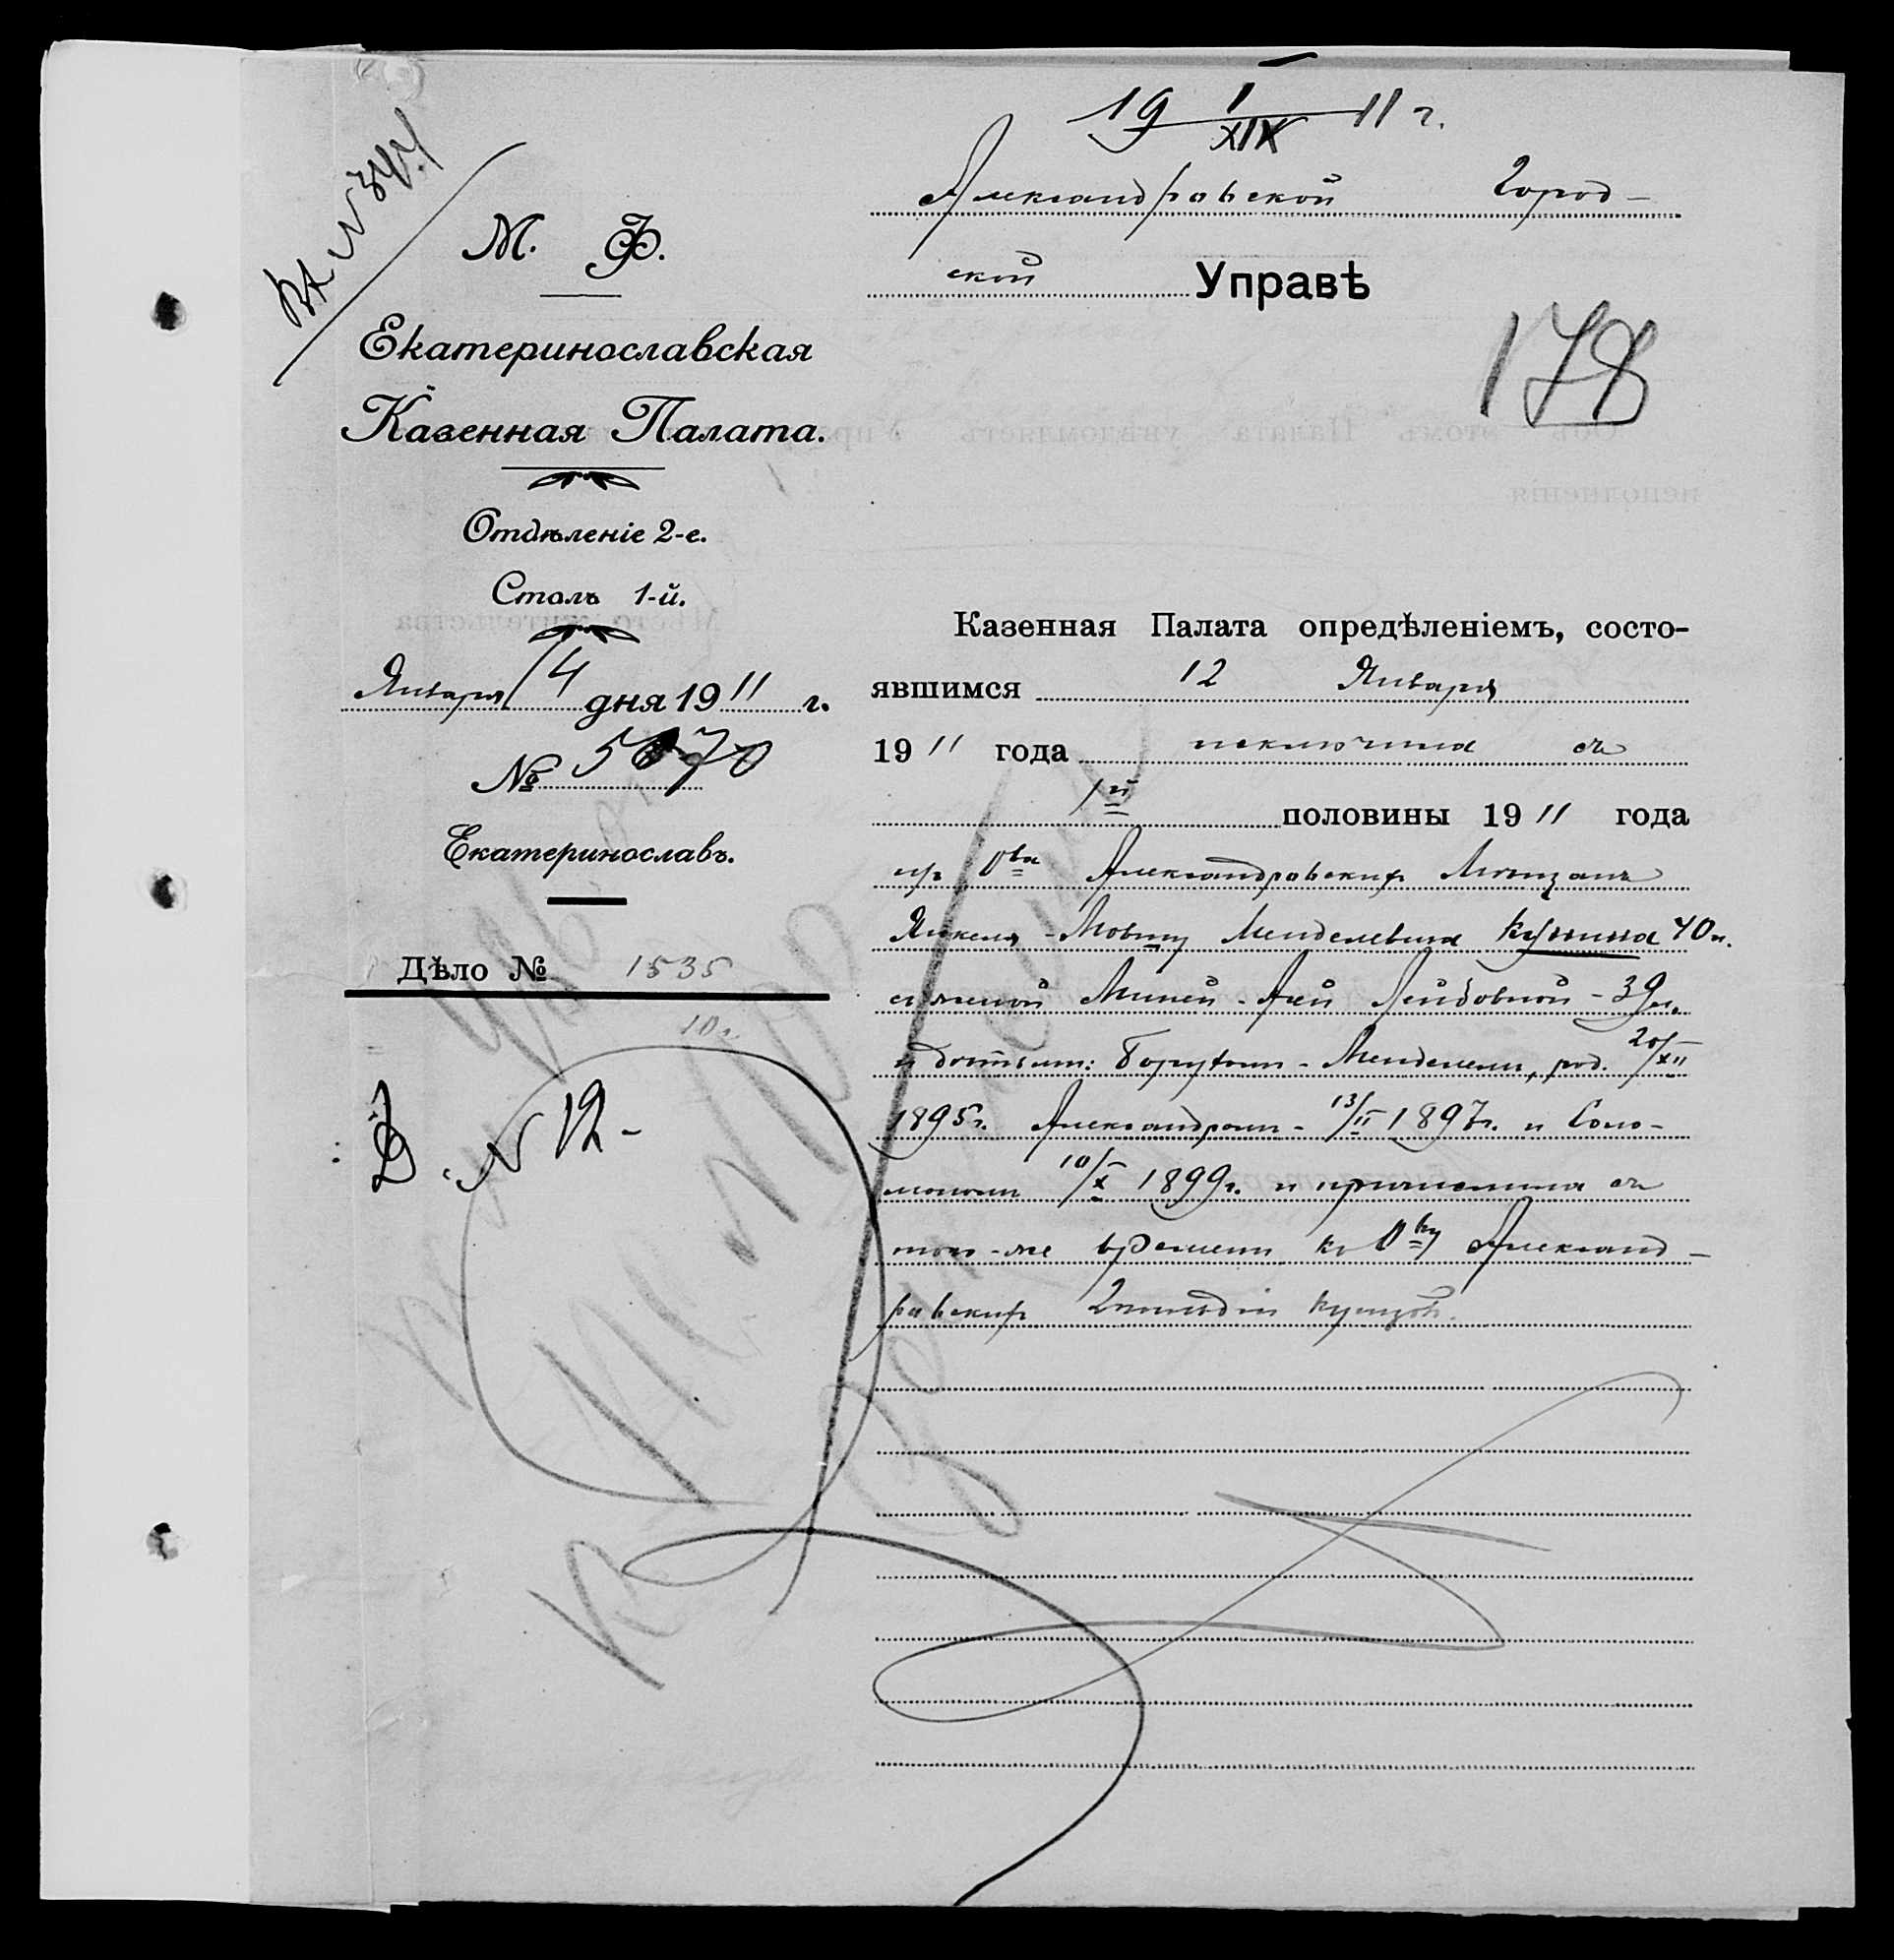 19 I/XIX 11 г.
Вх № 347
Александровской Город-
ской Управѣ
178
М. Ф.
Екатеринославская
Казенная Палата.
Отдѣленіе 2-е.
Столъ 1-й.
Января 14 дня 1911 г.
№ 5670
Екатеринославъ.
Дѣло № 1535
10 г.
Д. № 12-
Казенная Палата опредѣленіемъ, состо-
явшимся 12 Января
1911 года исключила съ
1й половины 1911 года
изъ Ова Александровскихъ Мѣщанъ
Янкеля-Мовшу Менделевича Кунина 40 л.
съ женой Миней-Леей Лейбовной - 39 л.
и дѣтьми: Борухомъ-Менделемъ, род. 20/XII
1895 г. Александромъ - 13/II 1897 г. и Соло-
мономъ 10/X 1899 г. и причислила съ
того-же времени къ Ову Александ-
ровскихъ 2 гильдіи купцовъ.